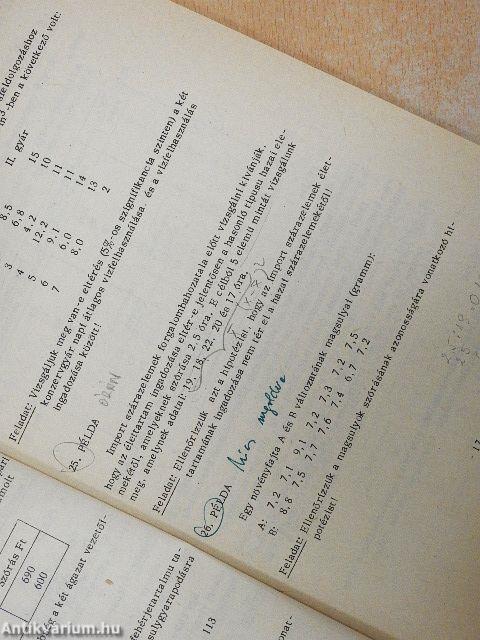 feldolgozáshoz
m³-ben a következő volt:
II. gyár
8,5 15
3 6,8 10
4 4,2 11
5 12,2 11
6 9,1 14
7 6,0 13
8,0 2
Feladat: Vizsgáljuk meg van-e eltérés (5%-os szignifikancia szinten) a két
konzervgyár napi átlagos vízfelhasználása és a vízfelhasználás
ingadozása között!
25. PÉLDA
Import szárazelemek forgalombahozatala előtt vizsgálni kívánják,
hogy az élettartam ingadozása eltér-e jelentősen a hasonló típusu hazai ele-
mekétől, amelyeknek szórása 2,5 óra. E célból 5 elemű mintát vizsgálunk
meg, amelynek adatai: 19, 18, 22, 20 és 17 óra.
Feladat: Ellenőrizzük azt a hipotézist, hogy az import szárazelemek élet-
tartamának ingadozása nem tér el a hazai szárazelemekétől!
26. PÉLDA nincs megoldva
Egy növényfajta A és B változatának magsulyai (gramm):
A: 7,2 7,1 9,1 7,2 7,3 7,2 7,5
B: 8,8 7,5 7,7 7,6 7,4 6,7 7,2
Feladat: Ellenőrizzük a magsulyok szórásának azonosságára vonatkozó hi-
potézist!
szórás Ft
690
600
ég a két ágazat vezetői-
fehérjetartalmu ta-
sulygyarapodásra
113
Antikvarium.hu